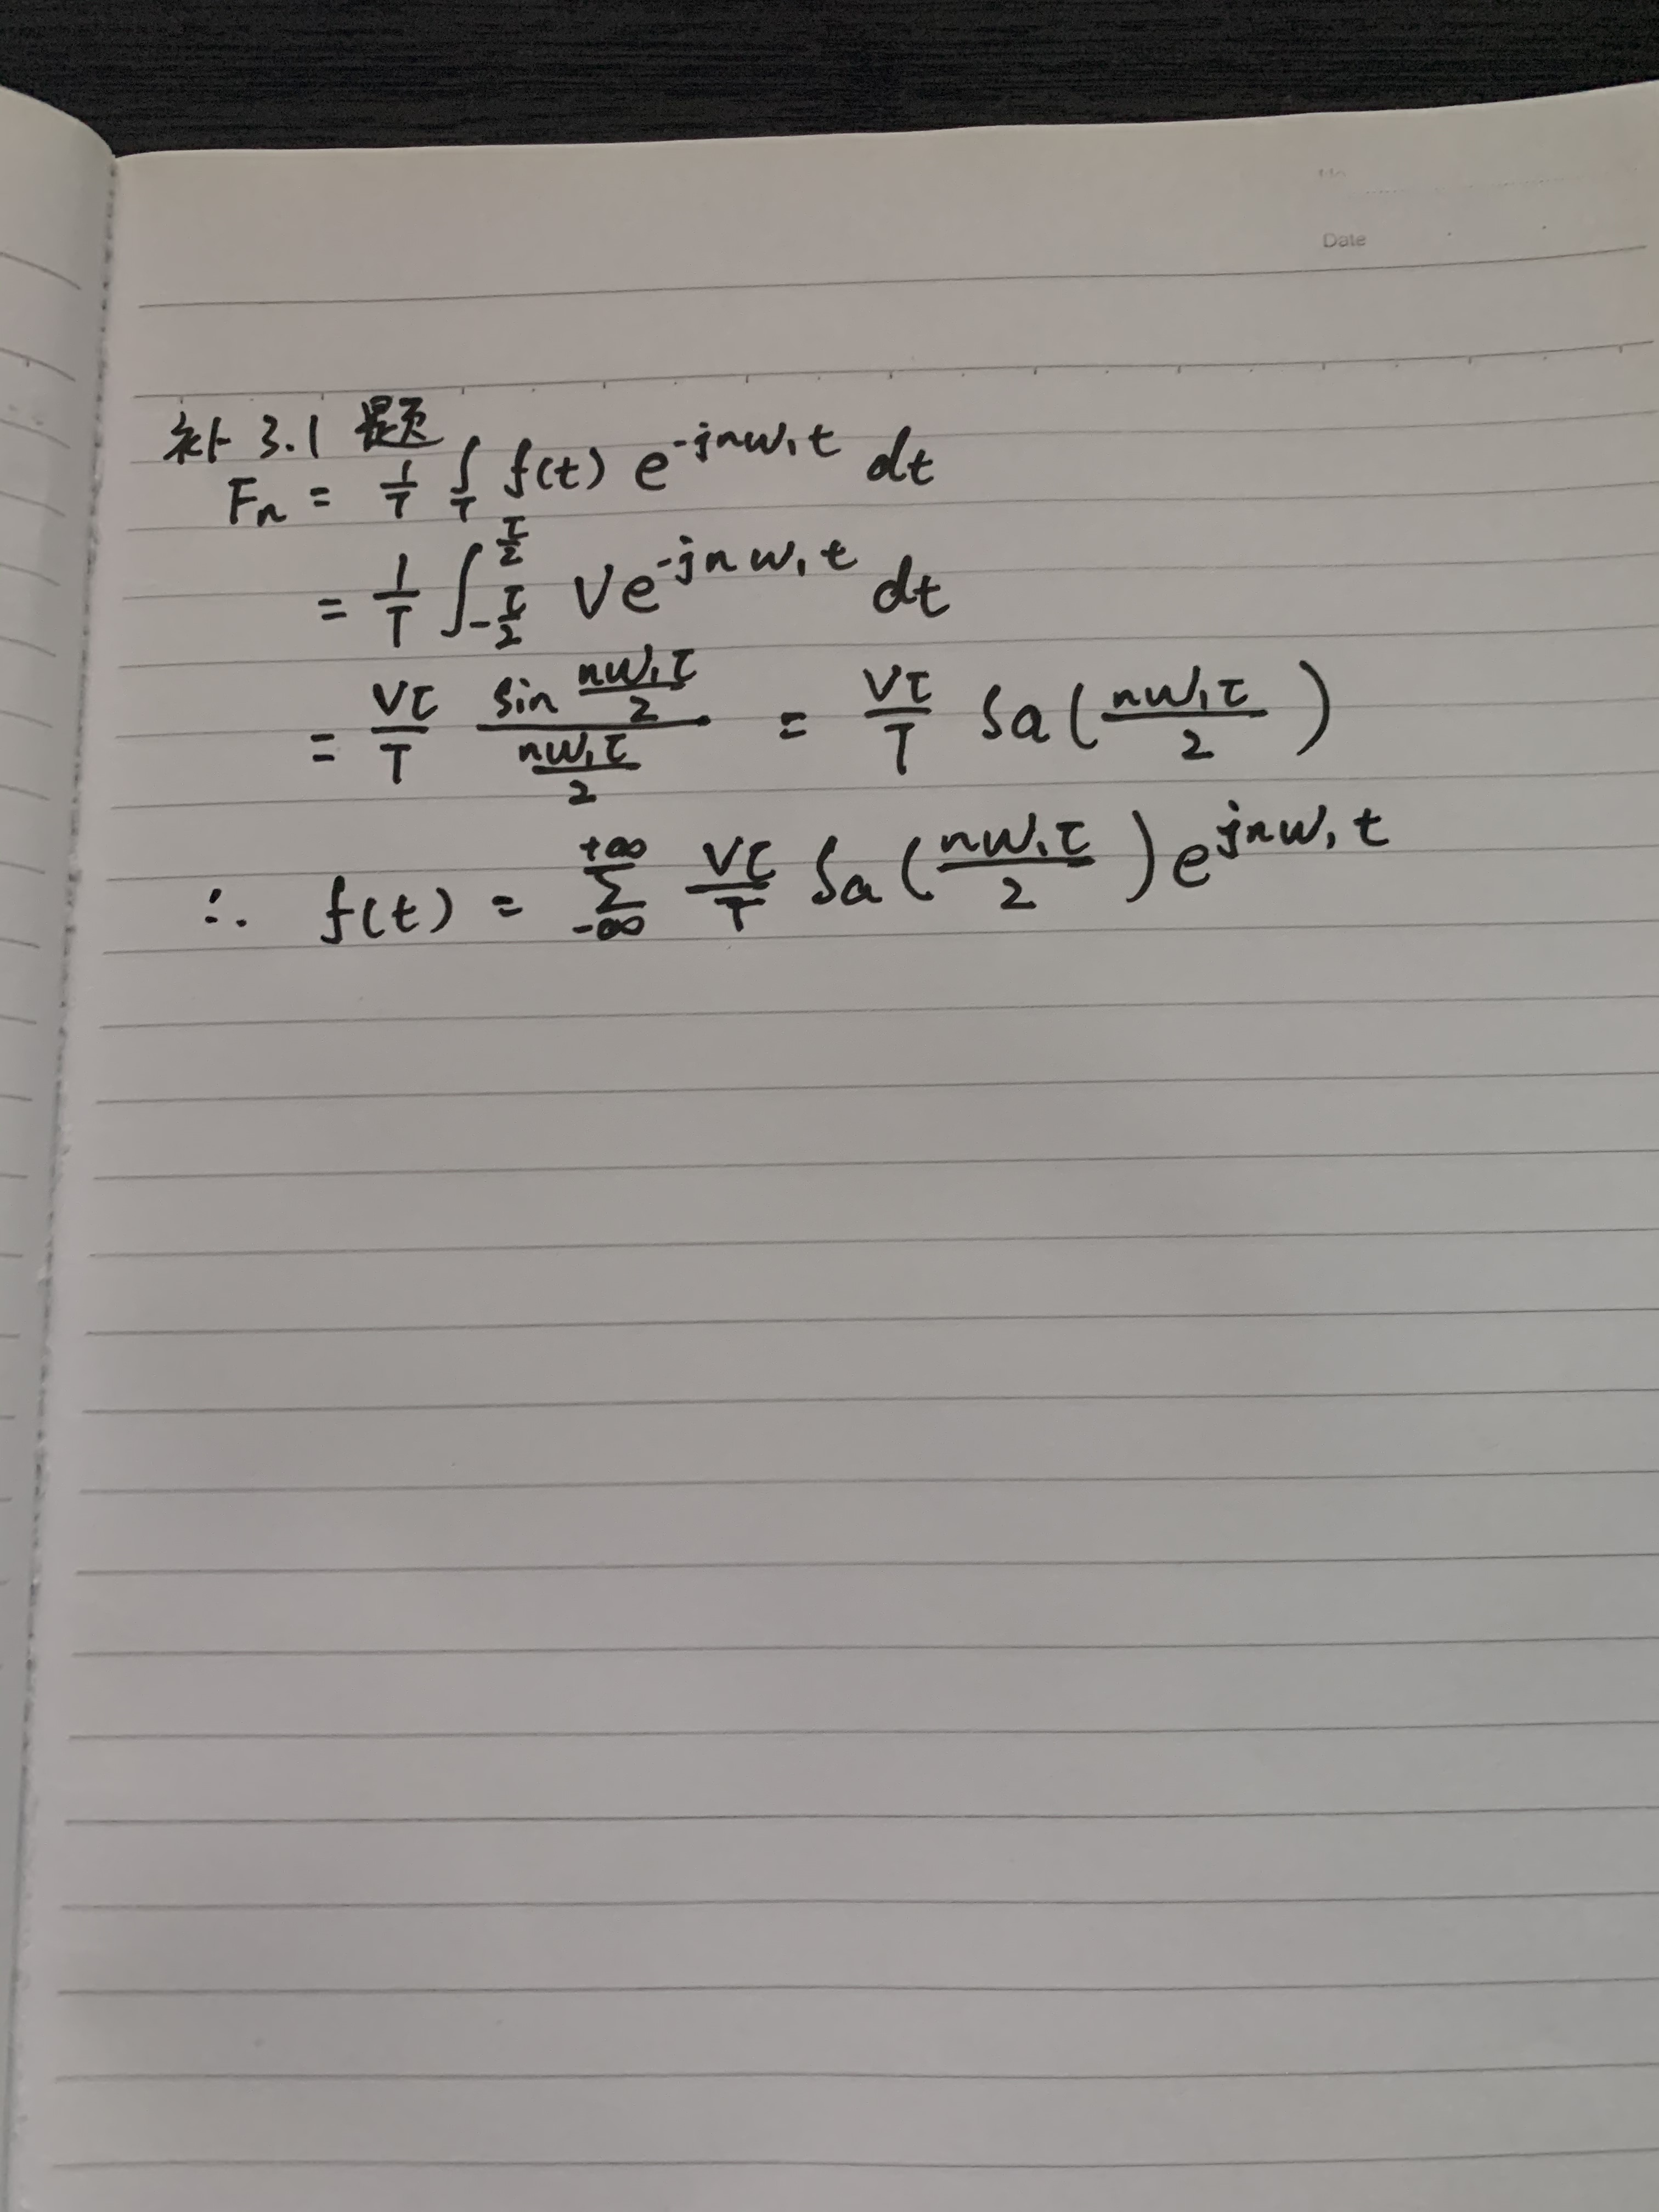 Date
补 3.1 题
Fn = 1/T ∫_T f(t) e^{-jnω₁t} dt
= 1/T ∫_{-τ/2}^{τ/2} V e^{-jnω₁t} dt
= Vτ/T · (sin nω₁τ/2)/(nω₁τ/2) = Vτ/T Sa(nω₁τ/2)
∴ f(t) = Σ_{-∞}^{+∞} Vτ/T Sa(nω₁τ/2) e^{jnω₁t}